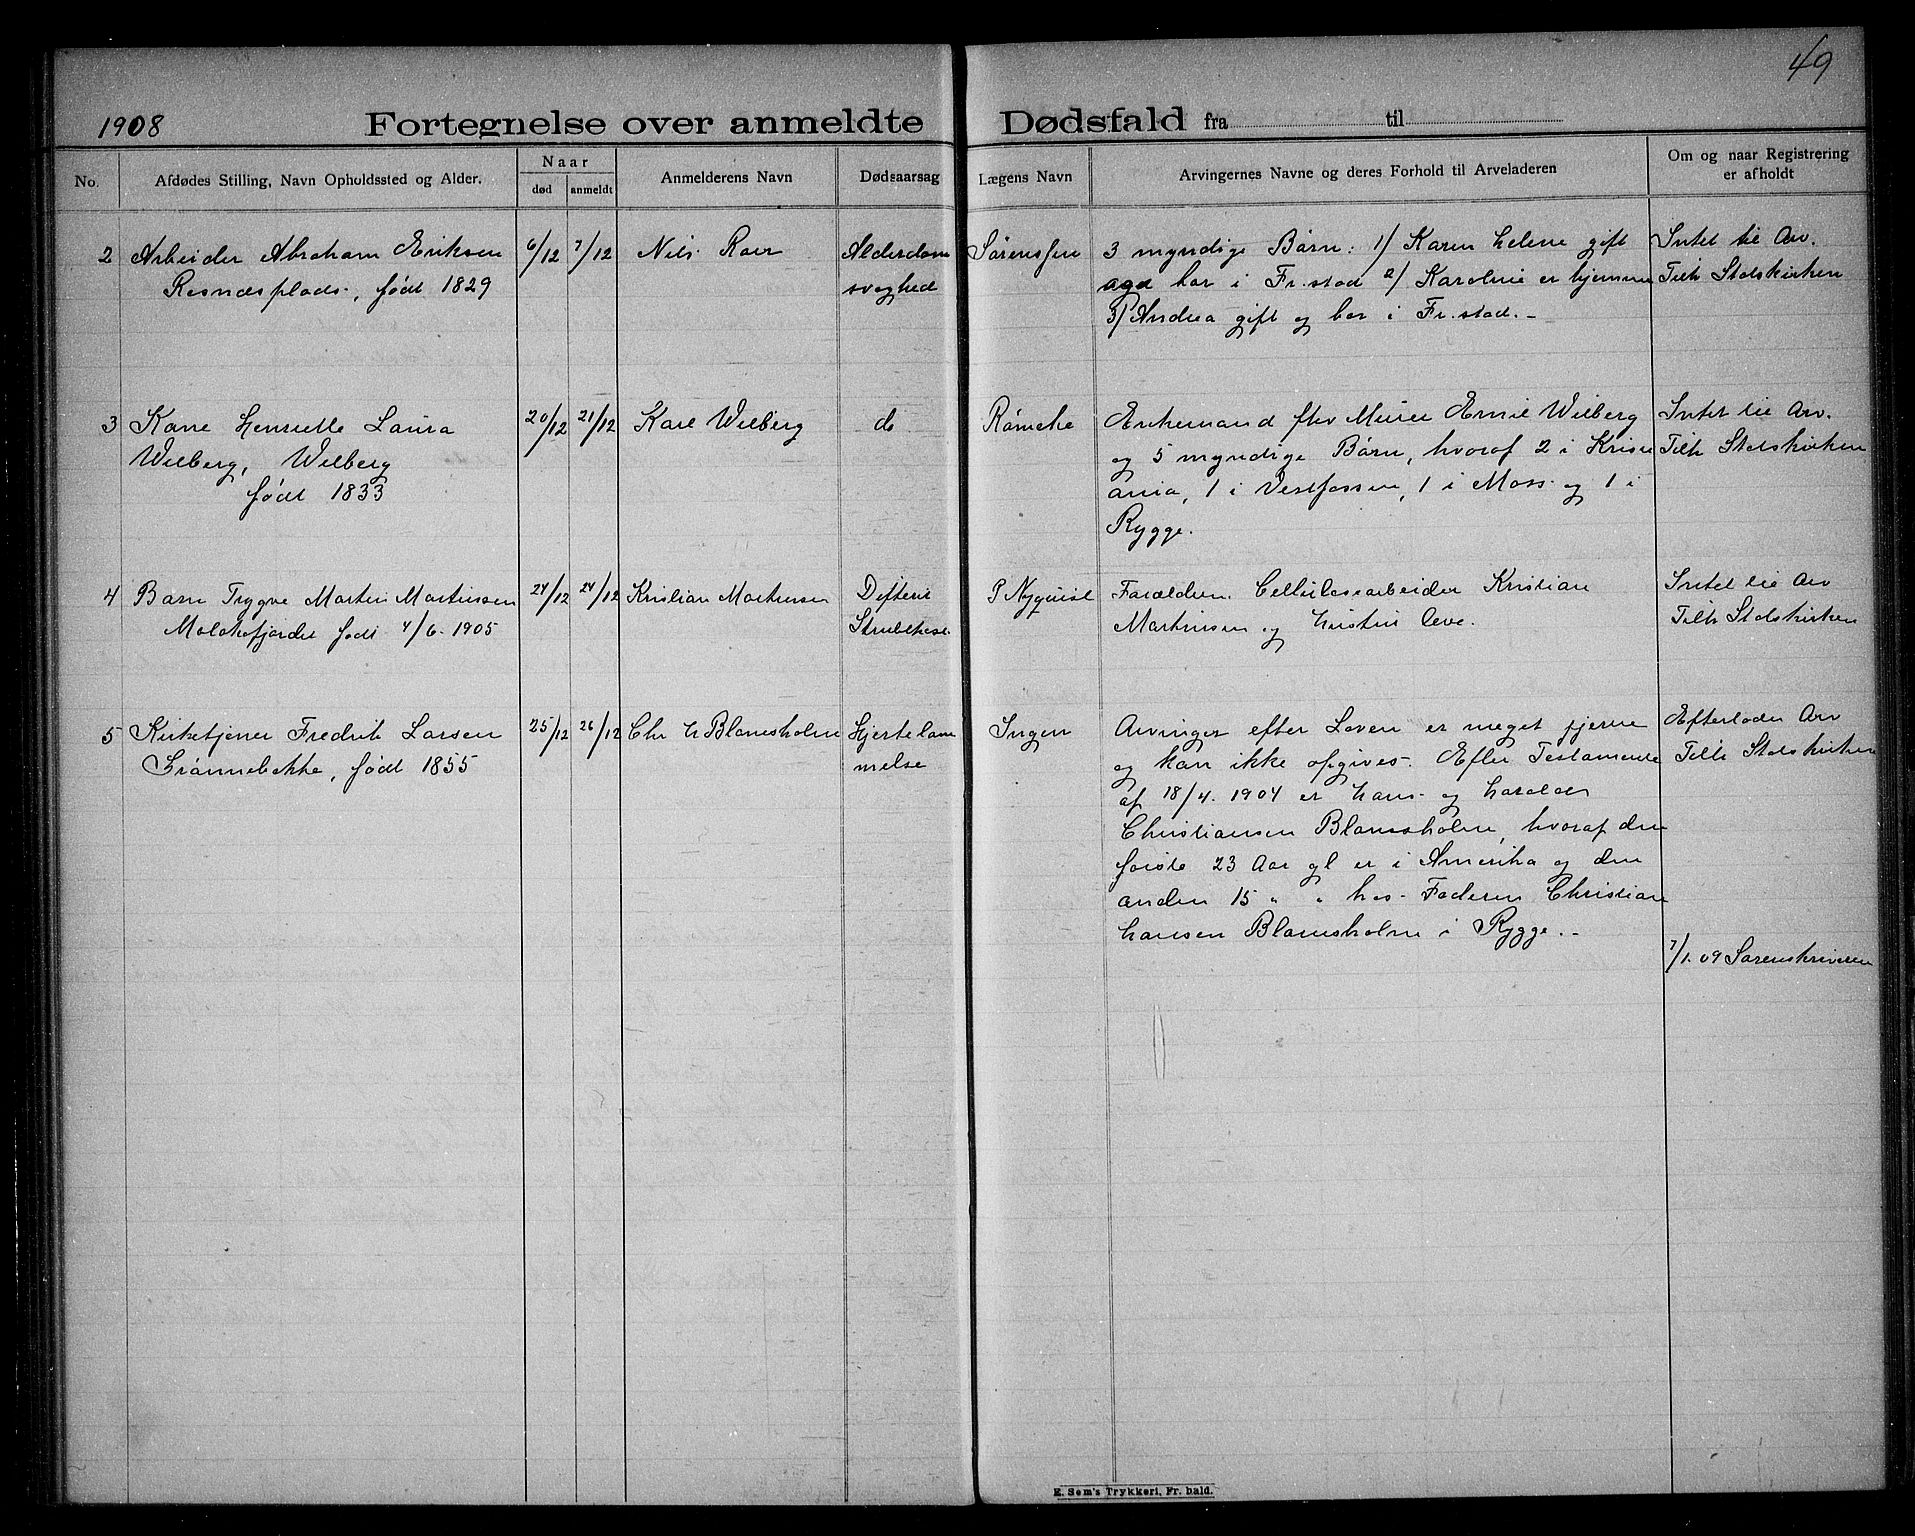 49
1908 Fortegnelse over anmeldte Dødsfald fra til
No.
Afdødes Stilling, Navn Opholdssted og Alder.
Naar
død
anmeldt
Anmelderens Navn
Dødsaarsag
Lægens Navn
Arvingernes Navne og deres Forhold til Arveladeren
Om og naar Registrering
er afholdt
2
Arbeider Abraham Eriksen
Resnæsplads, født 1829
6/12
7/12
Nils Roer
Alderdom
svaghed
Sørenssen
3 myndige Børn: 1) Karen Helene gift
og bor i Fr.stad 2) Karoline er hjemme
3) Andrea gift og bor i Fr.stad. -
Intet til Arv.
Tilh Statskirken
3
Kone Henriette Laura
Wilberg, Wilberg
født 1833
20/12
21/12
Karl Wilberg
do
Rømcke
Enkemand fhv Murer Emil Wilberg
og 5 myndige Børn, hvoraf 2 i Kristi
ania, 1 i Vestfossen, 1 i Moss og 1 i
Rygge.
Intet til Arv.
Tilh Statskirken
4
Barn Trygve Martin Martinsen
født 4/6. 1905
24/12
24/12
Kristian Martinsen
Difteri
Strubehost.
P Nyquist
Forældren Cellulosearbeider Kristian
Martinsen og Kristin leve.
Intet til Arv
Tilh Statskirken
5
Kirketjener Fredrik Larsen
Grønnebakke, født 1855
25/12
26/12
Chr H Blamesholm
Hjertelam
melse
Ingen
Arvinger efter Loven er meget fjerne
og kan ikke opgives. Efter Testamente
af 18/4. 1904 er Hans og Harald
Christiansen Blamesholm, hvoraf den
første 23 Aar gl er i Amerika og den
anden 15 " " hos Faderen Christian
Hansen Blamesholm i Rygge. -
Efterlader Arv
Tilh Statskirken
7/1. 09 Sorenskriveren
E. Sem's Trykkeri, Fr. hald.